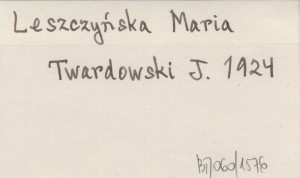 Leszczyńska Maria
Twardowski J. 1924
BJ/060/1576